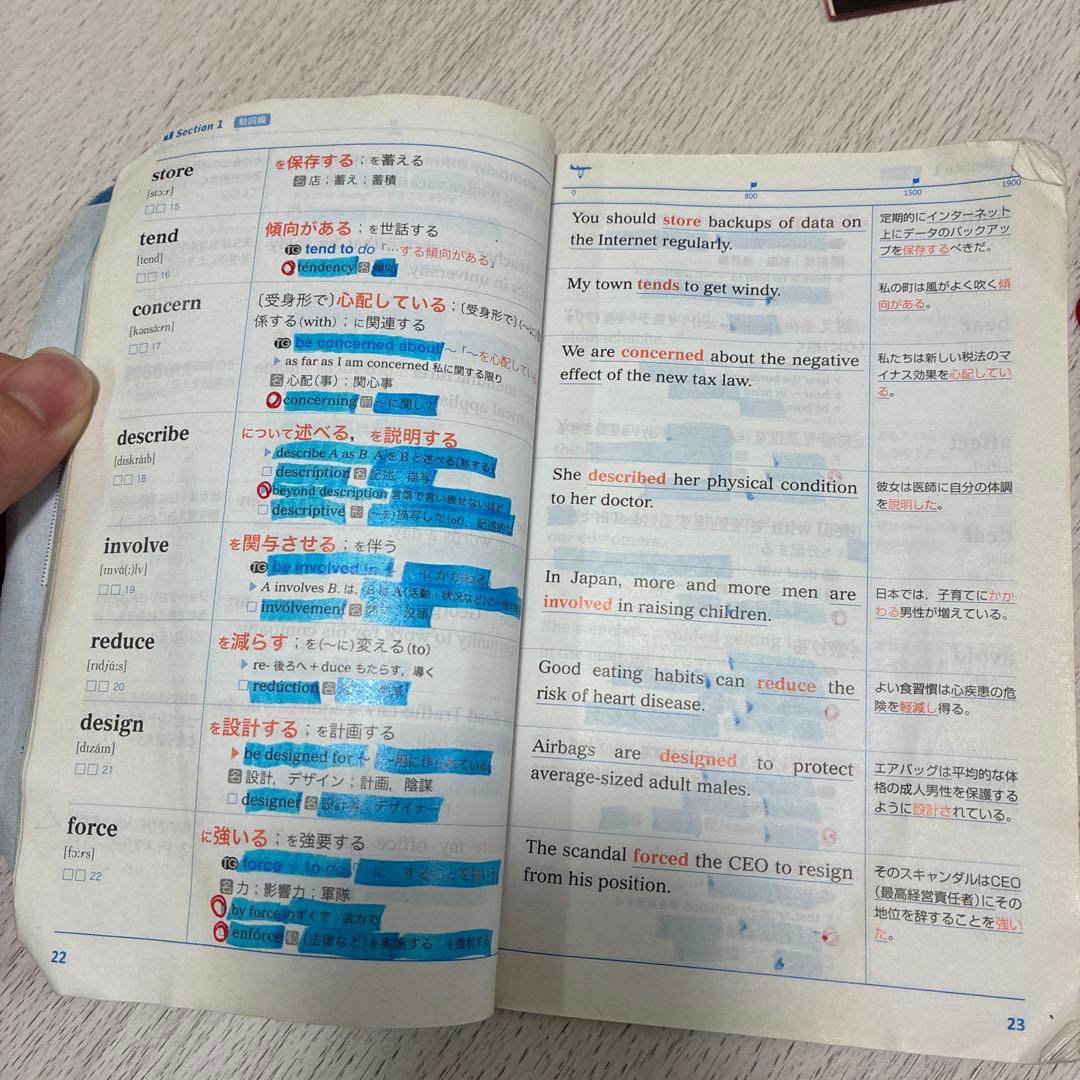 Section 1 動詞編
store
[stɔːr]
15
を保存する；を蓄える
名 店；蓄え；蓄積
tend
[tend]
16
傾向がある；を世話する
TG tend to do「…する傾向がある」
téndency 名 傾向
concern
[kənsə́ːrn]
17
〔受身形で〕心配している；〔受身形で〕(〜に)
係する(with)；に関連する
TG be concerned about 〜「〜を心配してい
as far as I am concerned 私に関する限り
名 心配(事)；関心事
concérning 前 〜に関して
describe
[dɪskráɪb]
18
について述べる，を説明する
describe A as B AをBと述べる[称する]
descríption 名 記述，描写
beyond description 言葉で言い表せないほど
descríptive 形 (〜を)描写した(of)，記述的な
involve
[ɪnvɑ́(ː)lv]
19
を関与させる；を伴う
TG be involved in 〜「〜にかかわる」
A involves B. は，「BはA(活動・状況など)の一部や
invólvement 名 没頭
reduce
[rɪdjúːs]
20
を減らす；を(〜に)変える(to)
re- 後ろへ＋duce もたらす，導く
redúction 名
design
[dɪzáɪn]
21
を設計する；を計画する
be designed for 〜「〜用に作られている」
名 設計，デザイン；計画，陰謀
designer 名 設計者，デザイナー
force
[fɔːrs]
22
に強いる；を強要する
TG force 〜 to do「〜に…することを強いる
名 力；影響力；軍隊
by force 力ずくで；武力で
enfórce 動 (法律など)を実施する；を強制する
22
0 800 1500 1900
You should store backups of data on
the Internet regularly.
定期的にインターネット
上にデータのバックアッ
プを保存するべきだ。
My town tends to get windy.
私の町は風がよく吹く傾
向がある。
We are concerned about the negative
effect of the new tax law.
私たちは新しい税法のマ
イナス効果を心配してい
る。
She described her physical condition
to her doctor.
彼女は医師に自分の体調
を説明した。
In Japan, more and more men are
involved in raising children.
日本では，子育てにかか
わる男性が増えている。
Good eating habits can reduce the
risk of heart disease.
よい食習慣は心疾患の危
険を軽減し得る。
Airbags are designed to protect
average-sized adult males.
エアバッグは平均的な体
格の成人男性を保護する
ように設計されている。
The scandal forced the CEO to resign
from his position.
そのスキャンダルはCEO
(最高経営責任者)にその
地位を辞することを強い
た。
23